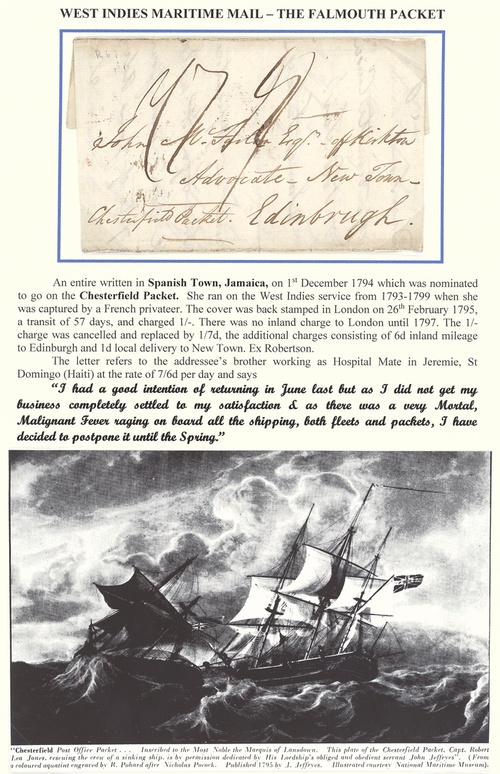 WEST INDIES MARITIME MAIL – THE FALMOUTH PACKET
1/7
John Esqr. of Kirkton
Advocate – New Town –
Chesterfield Packet. Edinbrugh.
An entire written in Spanish Town, Jamaica, on 1st December 1794 which was nominated
to go on the Chesterfield Packet. She ran on the West Indies service from 1793-1799 when she
was captured by a French privateer. The cover was back stamped in London on 26th February 1795,
a transit of 57 days, and charged 1/-. There was no inland charge to London until 1797. The 1/-
charge was cancelled and replaced by 1/7d, the additional charges consisting of 6d inland mileage
to Edinburgh and 1d local delivery to New Town. Ex Robertson.
The letter refers to the addressee's brother working as Hospital Mate in Jeremie, St
Domingo (Haiti) at the rate of 7/6d per day and says
"I had a good intention of returning in June last but as I did not get my
business completely settled to my satisfaction & as there was a very Mortal,
Malignant Fever raging on board all the shipping, both fleets and packets, I have
decided to postpone it until the Spring."
"Chesterfield Post Office Packet . . . Inscribed to the Most Noble the Marquis of Lansdown. This plate of the Chesterfield Packet, Capt. Robert
Lea Jones, rescuing the crew of a sinking ship, is by permission dedicated by His Lordship's obliged and obedient servant John Jeffryes". (From
a coloured aquatint engraved by R. Pollard after Nicholas Pocock. Published 1795 by J. Jeffryes. Illustrated courtesy National Maritime Museum).